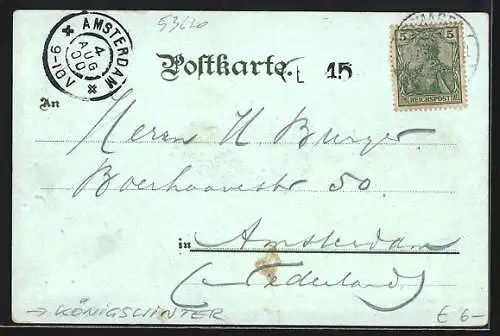 53620
AMSTERDAM
4
AUG
00
9-10V
5 5
REICHSPOST
Postkarte.
15
An
Herrn H Burger
Boerhaavestr 50.
in Amsterdam
(Nederland)
→ KÖNIGSWINTER
€ 6-